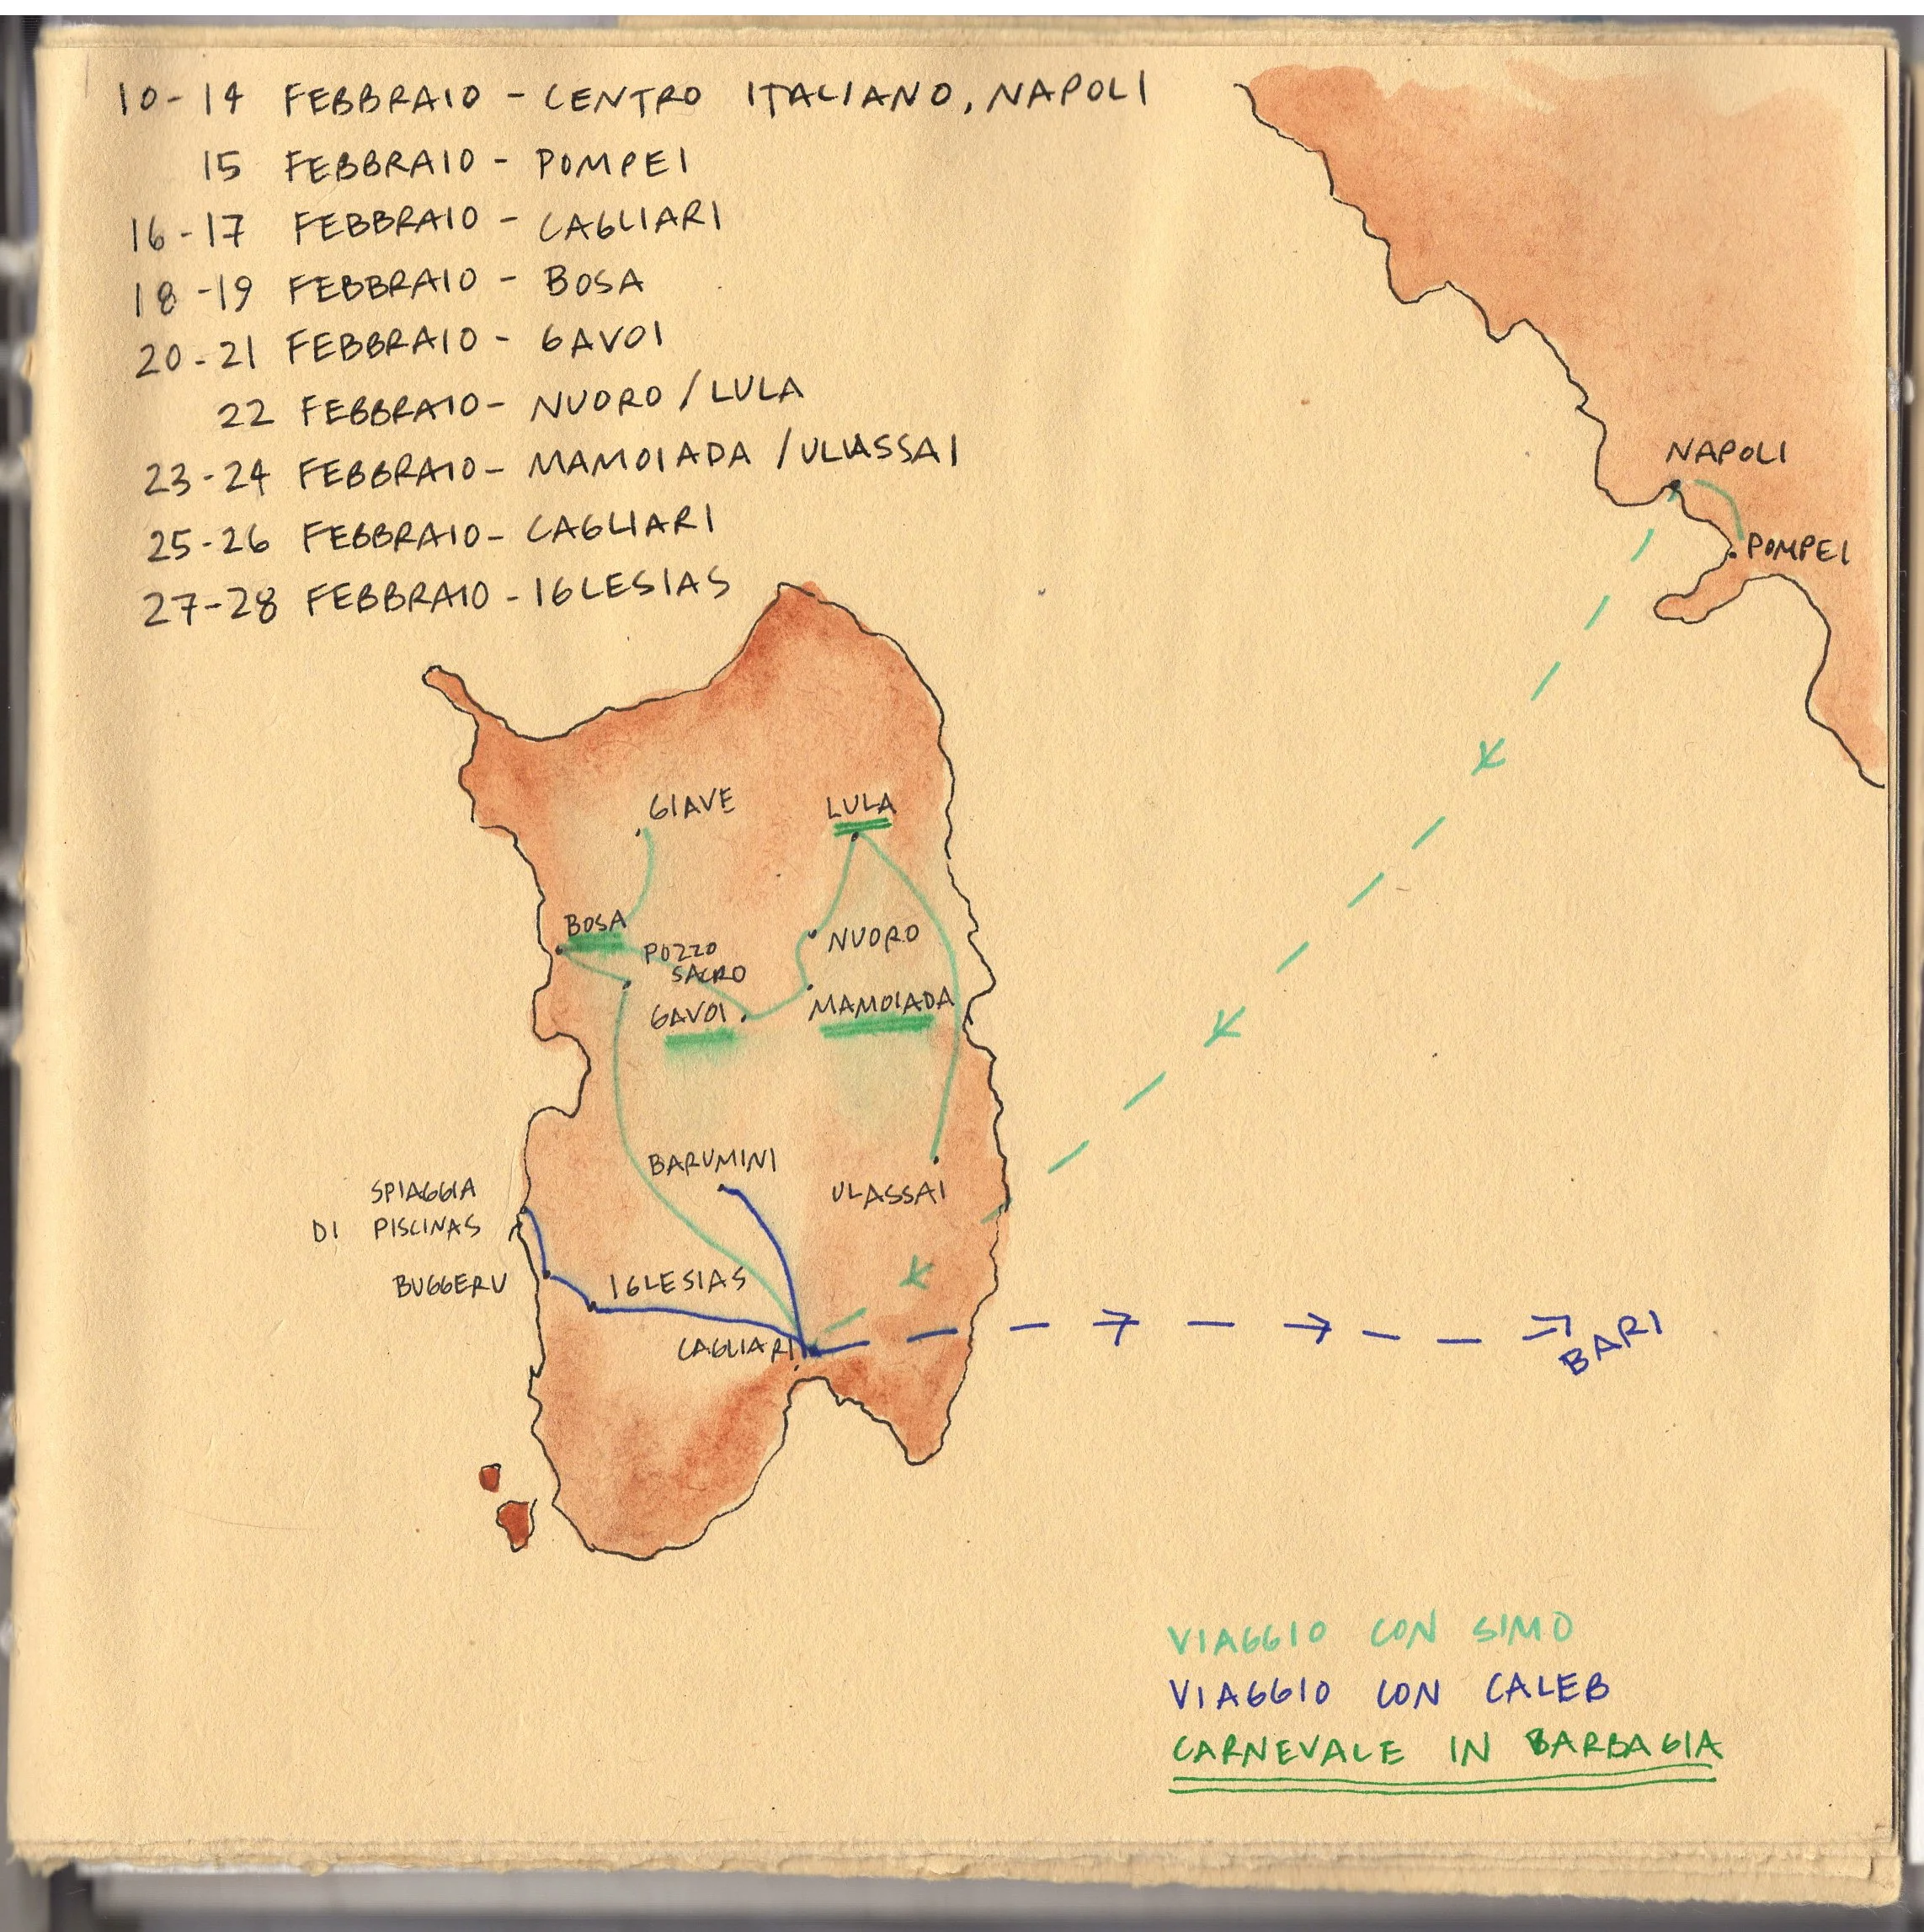 10-14 FEBBRAIO - CENTRO ITALIANO, NAPOLI
15 FEBBRAIO - POMPEI
16-17 FEBBRAIO - CAGLIARI
18-19 FEBBRAIO - BOSA
20-21 FEBBRAIO - GAVOI
22 FEBBRAIO - NUORO / LULA
23-24 FEBBRAIO - MAMOIADA / ULASSAI
25-26 FEBBRAIO - CAGLIARI
27-28 FEBBRAIO - IGLESIAS
NAPOLI
POMPEI
GIAVE
LULA
BOSA
POZZO
SACRO
NUORO
GAVOI
MAMOIADA
BARUMINI
ULASSAI
SPIAGGIA
DI PISCINAS
BUGGERU
IGLESIAS
CAGLIARI
BARI
VIAGGIO CON SIMO
VIAGGIO CON CALEB
CARNEVALE IN BARBAGIA